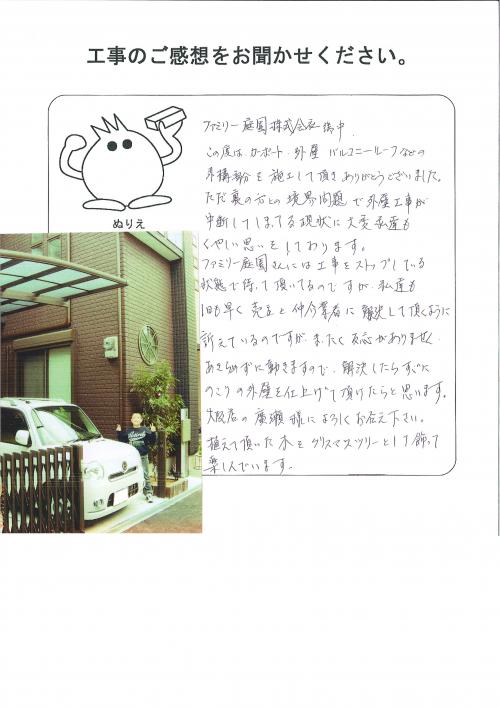 工事のご感想をお聞かせください。
ぬりえ
ファミリー庭園株式会社御中
この度は、カーポート、外壁 バルコニールーフなどの
外構部分を施工して頂きありがとうございました。
ただ裏の方との境界問題で外壁工事が
中断してしまってる現状に大変私達も
くやしい思いをしております。
ファミリー庭園さんには工事をストップしている
状態で待って頂いてるのですが、私達も
1日も早く売主と仲介業者に解決して頂くように
訴えているのですが、まったく反応がありません。
あきらめずに動きますので、解決したらすぐに
のこりの外壁を仕上げて頂けたらと思います。
大阪店の廣瀬様によろしくお伝え下さい。
植えて頂いた木をクリスマスツリーとして飾って
楽しんでいます。